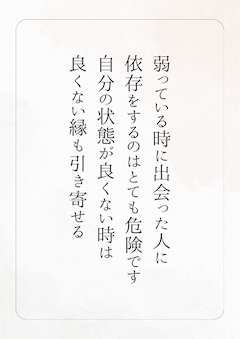 弱っている時に出会った人に
依存をするのはとても危険です
自分の状態が良くない時は
良くない縁も引き寄せる